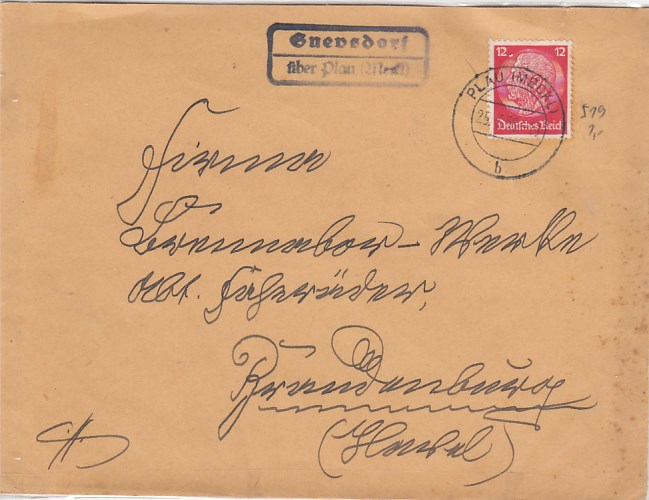 Gnevsdorf
über Plau (Meckl)
12 12
Deutsches Reich
PLAU (MECKL)
25.
b
519
Firma
Brennabor-Werke
Abt. Fahrräder,
Brandenburg
(Havel)